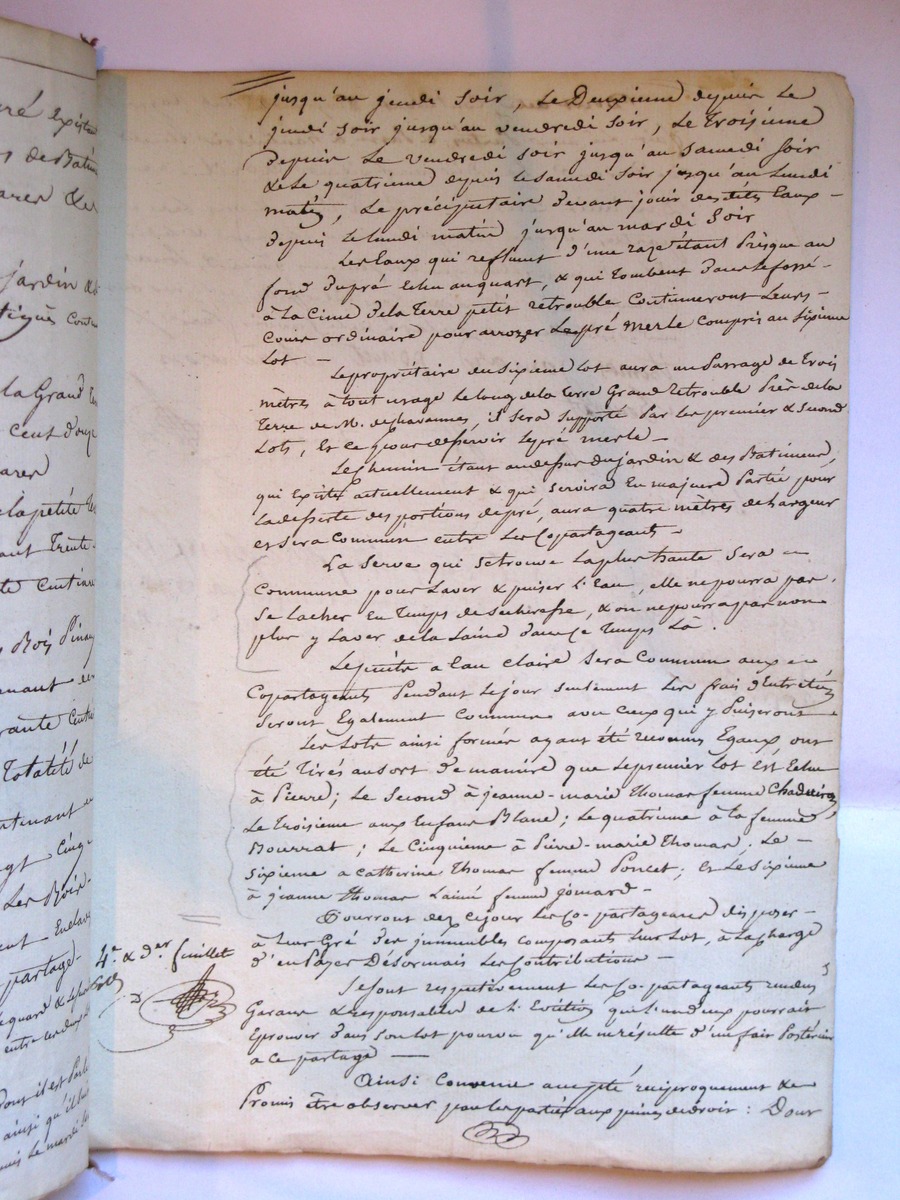 jusqu'au jeudi soir, le Deuxieme depuis le
jeudi soir jusqu'au vendredi soir, le troisieme
Depuis le vendredi soir jusqu'au samedi soir
& le quatrieme depuis le samedi soir jusqu'au lundi
matin, le préciputaire devant jouir desdites Eaux
depuis le lundi matin jusqu'au mardi soir
Les Eaux qui refluent d'une raze étant presque au
fond du pré Echu au quart, & qui tombent dans le fossé
à la Cime de la terre petit retrouble Continueront leurs
Cours ordinaire pour arrozer le pré merle compris au sixieme
Lot —
Le propriétaire du sixieme lot aura un Passage de trois
mètres à tout usage le long de la terre Grand retrouble Près de la
terre de M. de chavannes, il sera supporté Par les premier & second
Lots, Et ce pour desservir le pré merle —
Le chemin étant au dessus du jardin & des Batimens,
qui Existe actuellement & qui servira En majeure Partie pour
la desserte des portions de pré, aura quatre mètres de largeur
et sera Commun entre les Copartageants —
La serve qui se trouve la plus haute sera
Commune pour Laver & puiser l'Eau, elle ne pourra pas
se lacher En temps de secheresse, & on ne pourra pas non
plus y laver de la Laine dans ce temps là.
Le puits a Eau claire sera Commun aux
Copartageants Pendant le jour seulement les frais d'Entretien
seront Egalement Communs avec ceux qui y Puiseront
Les lots ainsi formés ayant été reconnus Egaux, ont
été tirés au sort de manière que le premier lot est Echu
à Pierre; le second à jeanne-marie thomas femme Chaduiron,
le troisieme aux Enfans Blanc; le quatrieme à la femme
Bourrat; le Cinquieme à Pierre-marie Thomas; le
sixieme a catherine Thomas femme Poncet; et le sixieme
à jeanne thomas l'ainée femme jomard —
Pourront dez ce jour les Co-partageans disposer
à leur Gré des immeubles composants leur lot, à la charge
d'en Payer Désormais les Contributions —
Se sont respectivement les Co-partageants rendus
Garans & responsables de l'Eviction que l'un d'eux pourrait
Eprouver dans son lot pourvu qu'elle ne résulte d'un fait Postérieur
a ce partage —
Ainsi Convenu accepté réciproquement &
Promis être observer par les parties aux peines de droit: Dont
4.e & d.er feuillet